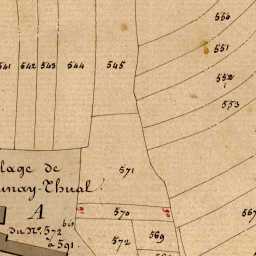 550
551
552
553
541 542 543 544 545
571
lage de
unay-Thual.
A
du N°. 572 bis
à 591.
570
572
569
567